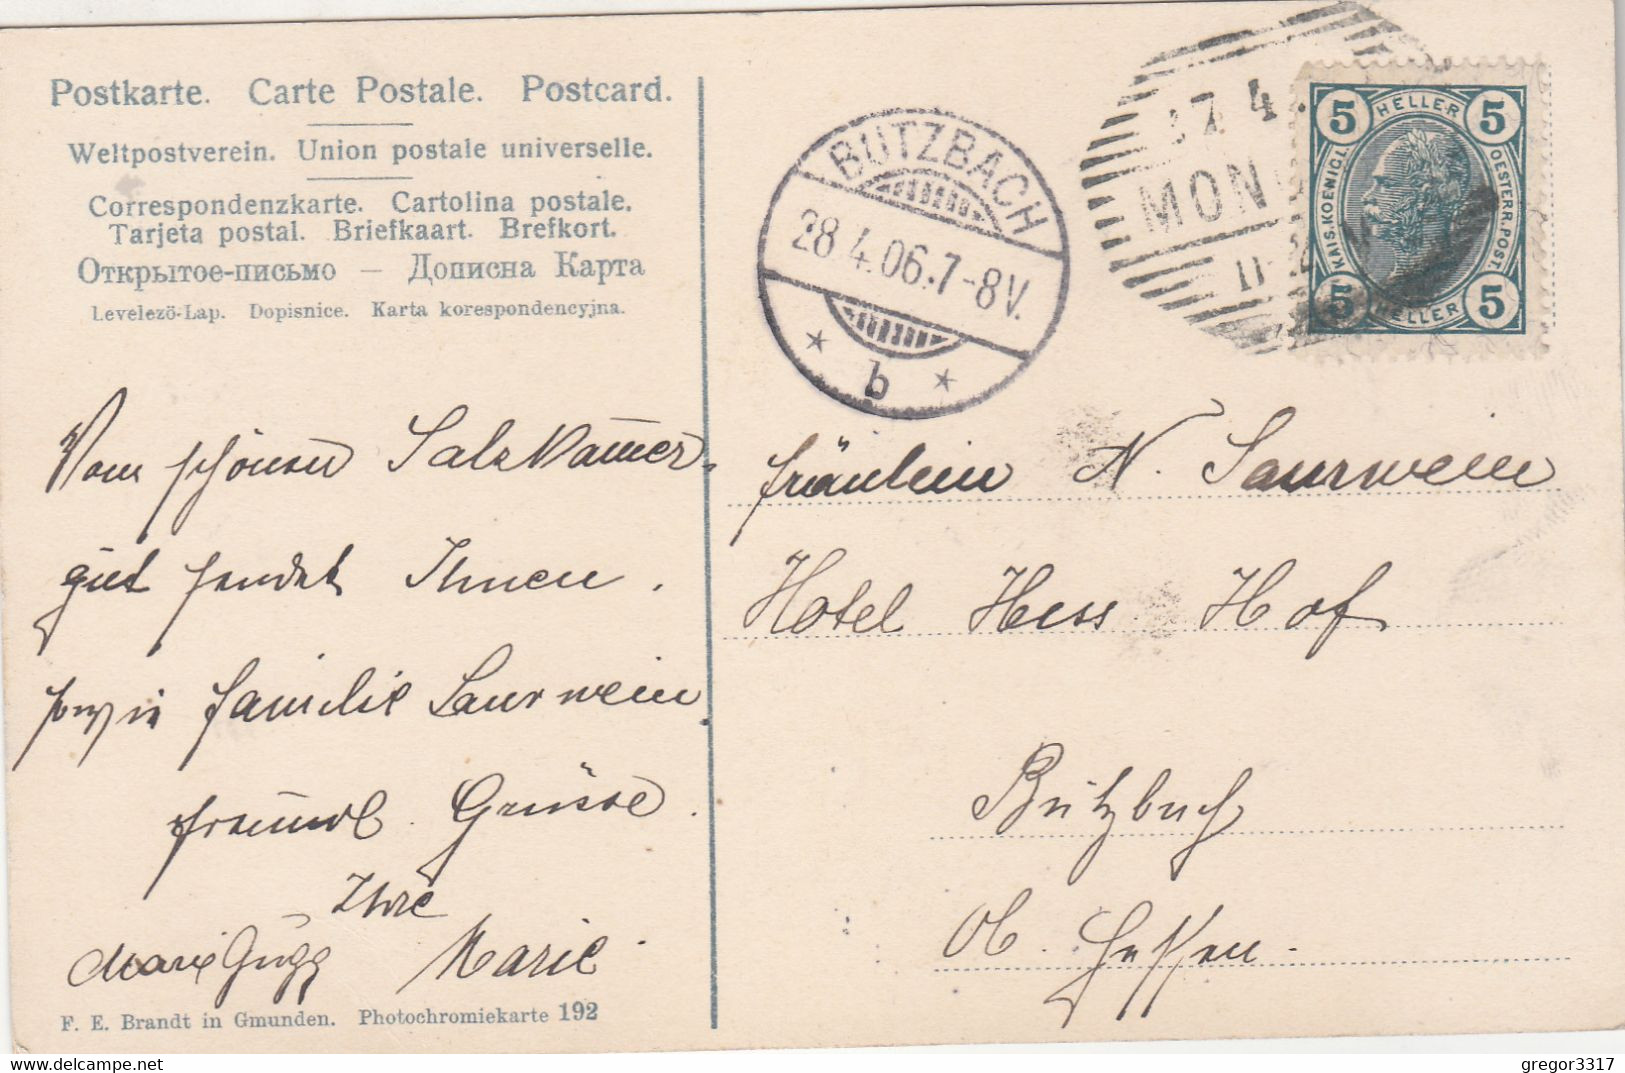 Postkarte. Carte Postale. Postcard.
Weltpostverein. Union postale universelle.
Correspondenzkarte. Cartolina postale.
Tarjeta postal. Briefkaart. Brefkort.
Открытое-письмо — Дописна Карта
Levelező-Lap. Dopisnice. Karta korespondencyjna.
Vom schönen Salzkammer-
gut sendet Ihnen
sowie Familie Saurwein
freundl. Grüsse.
Ihre
Marie Gugg Marie
F. E. Brandt in Gmunden. Photochromiekarte 192
BUTZBACH
28.4.06.7-8V.
* b *
27 4
MON
5 HELLER 5
KAIS. KOENIGL. OESTERR. POST.
5 HELLER 5
Fräulein N. Saurwein
Hotel Hess Hof
Butzbach
Ob. Hessen.
gregor3317